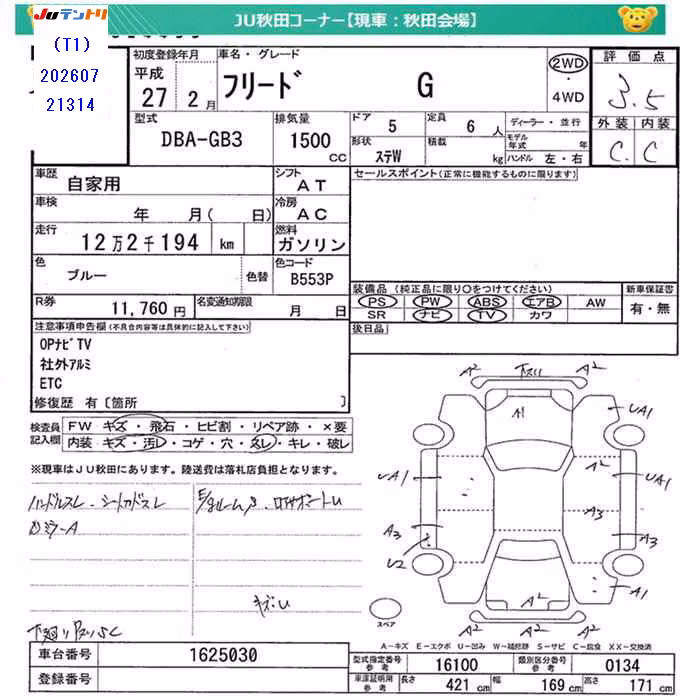 JUテントリ
JU秋田コーナー【現車：秋田会場】
(T1)
202607
21314
初度登録年月
平成
27 2月
車名・グレード
フリード G
2WD
・
4WD
評価点
3.5
型式
DBA-GB3
排気量
1500
CC
ドア 5
定員 6 人
形状
ステW
積載
kg
ディーラー・並行
モデル年式 年
ハンドル 左・右
外装 内装
C. C
車歴
自家用
シフト
AT
車検
年 月( 日)
冷房
AC
走行
12万2千194 km
燃料
ガソリン
色
ブルー
色替
色コード
B553P
R券
11,760円
名変通知期限
月 日
セールスポイント(正常に機能するものに限ります)
装備品(純正品に限り○をつけてください)
PS PW ABS エアB AW
SR ナビ TV カワ
新車保証書
有・無
後日品
注意事項申告欄(不具合内容等は具体的に記入して下さい)
OPナビTV
社外アルミ
ETC
修復歴 有〔箇所 〕
検査員
記入欄
FW キズ・飛石・ヒビ割・リペア跡・×要
内装 キズ・汚レ・コゲ・穴・スレ・キレ・破レ
※現車はJU秋田にあります。陸送費は落札店負担となります。
ハンドルスレ・シートカドスレ
キズU
A2
A2
A1
UA1
UA1
A2
UA1
A3
A3
A3
U2
A1
A2
A2
スペア
A－キズ E－エクボ U－凹み W－補修跡 S－サビ C－腐食 XX－交換済
車台番号
1625030
登録番号
型式指定番号
参考
16100
類別区分番号
参考
0134
車庫証明用
参考
長さ 421 cm
幅 169 cm
高さ 171 cm